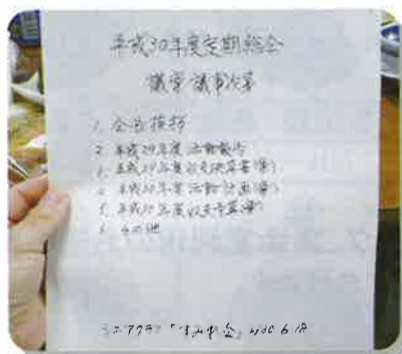 平成30年度定期総会
議案 議事次第
1. 会長挨拶
2. 平成29年度 活動報告
3. 平成29年度収支決算書(案)
4. 平成30年度 活動計画(案)
5. 平成30年度収支予算(案)
6. その他